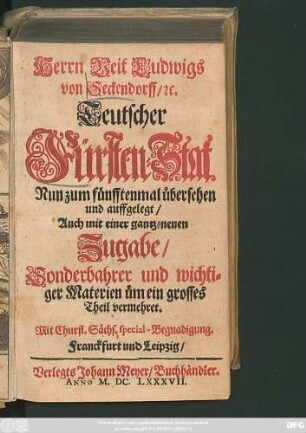 Herrn Veit Ludwigs
von Seckendorff/ ꝛc.
Teutscher
Fürsten-Stat.
Nun zum fünfftenmal übersehen
und auffgelegt/
Auch mit einer gantz neuen
Zugabe/
Sonderbahrer und wichti-
ger Materien üm ein grosses
Theil vermehret.
Mit Churfl. Sächs. special-Begnadigung.
Franckfurt und Leipzig/
Verlegts Johann Meyer/ Buchhändler.
ANNO M. DC. LXXXVII.